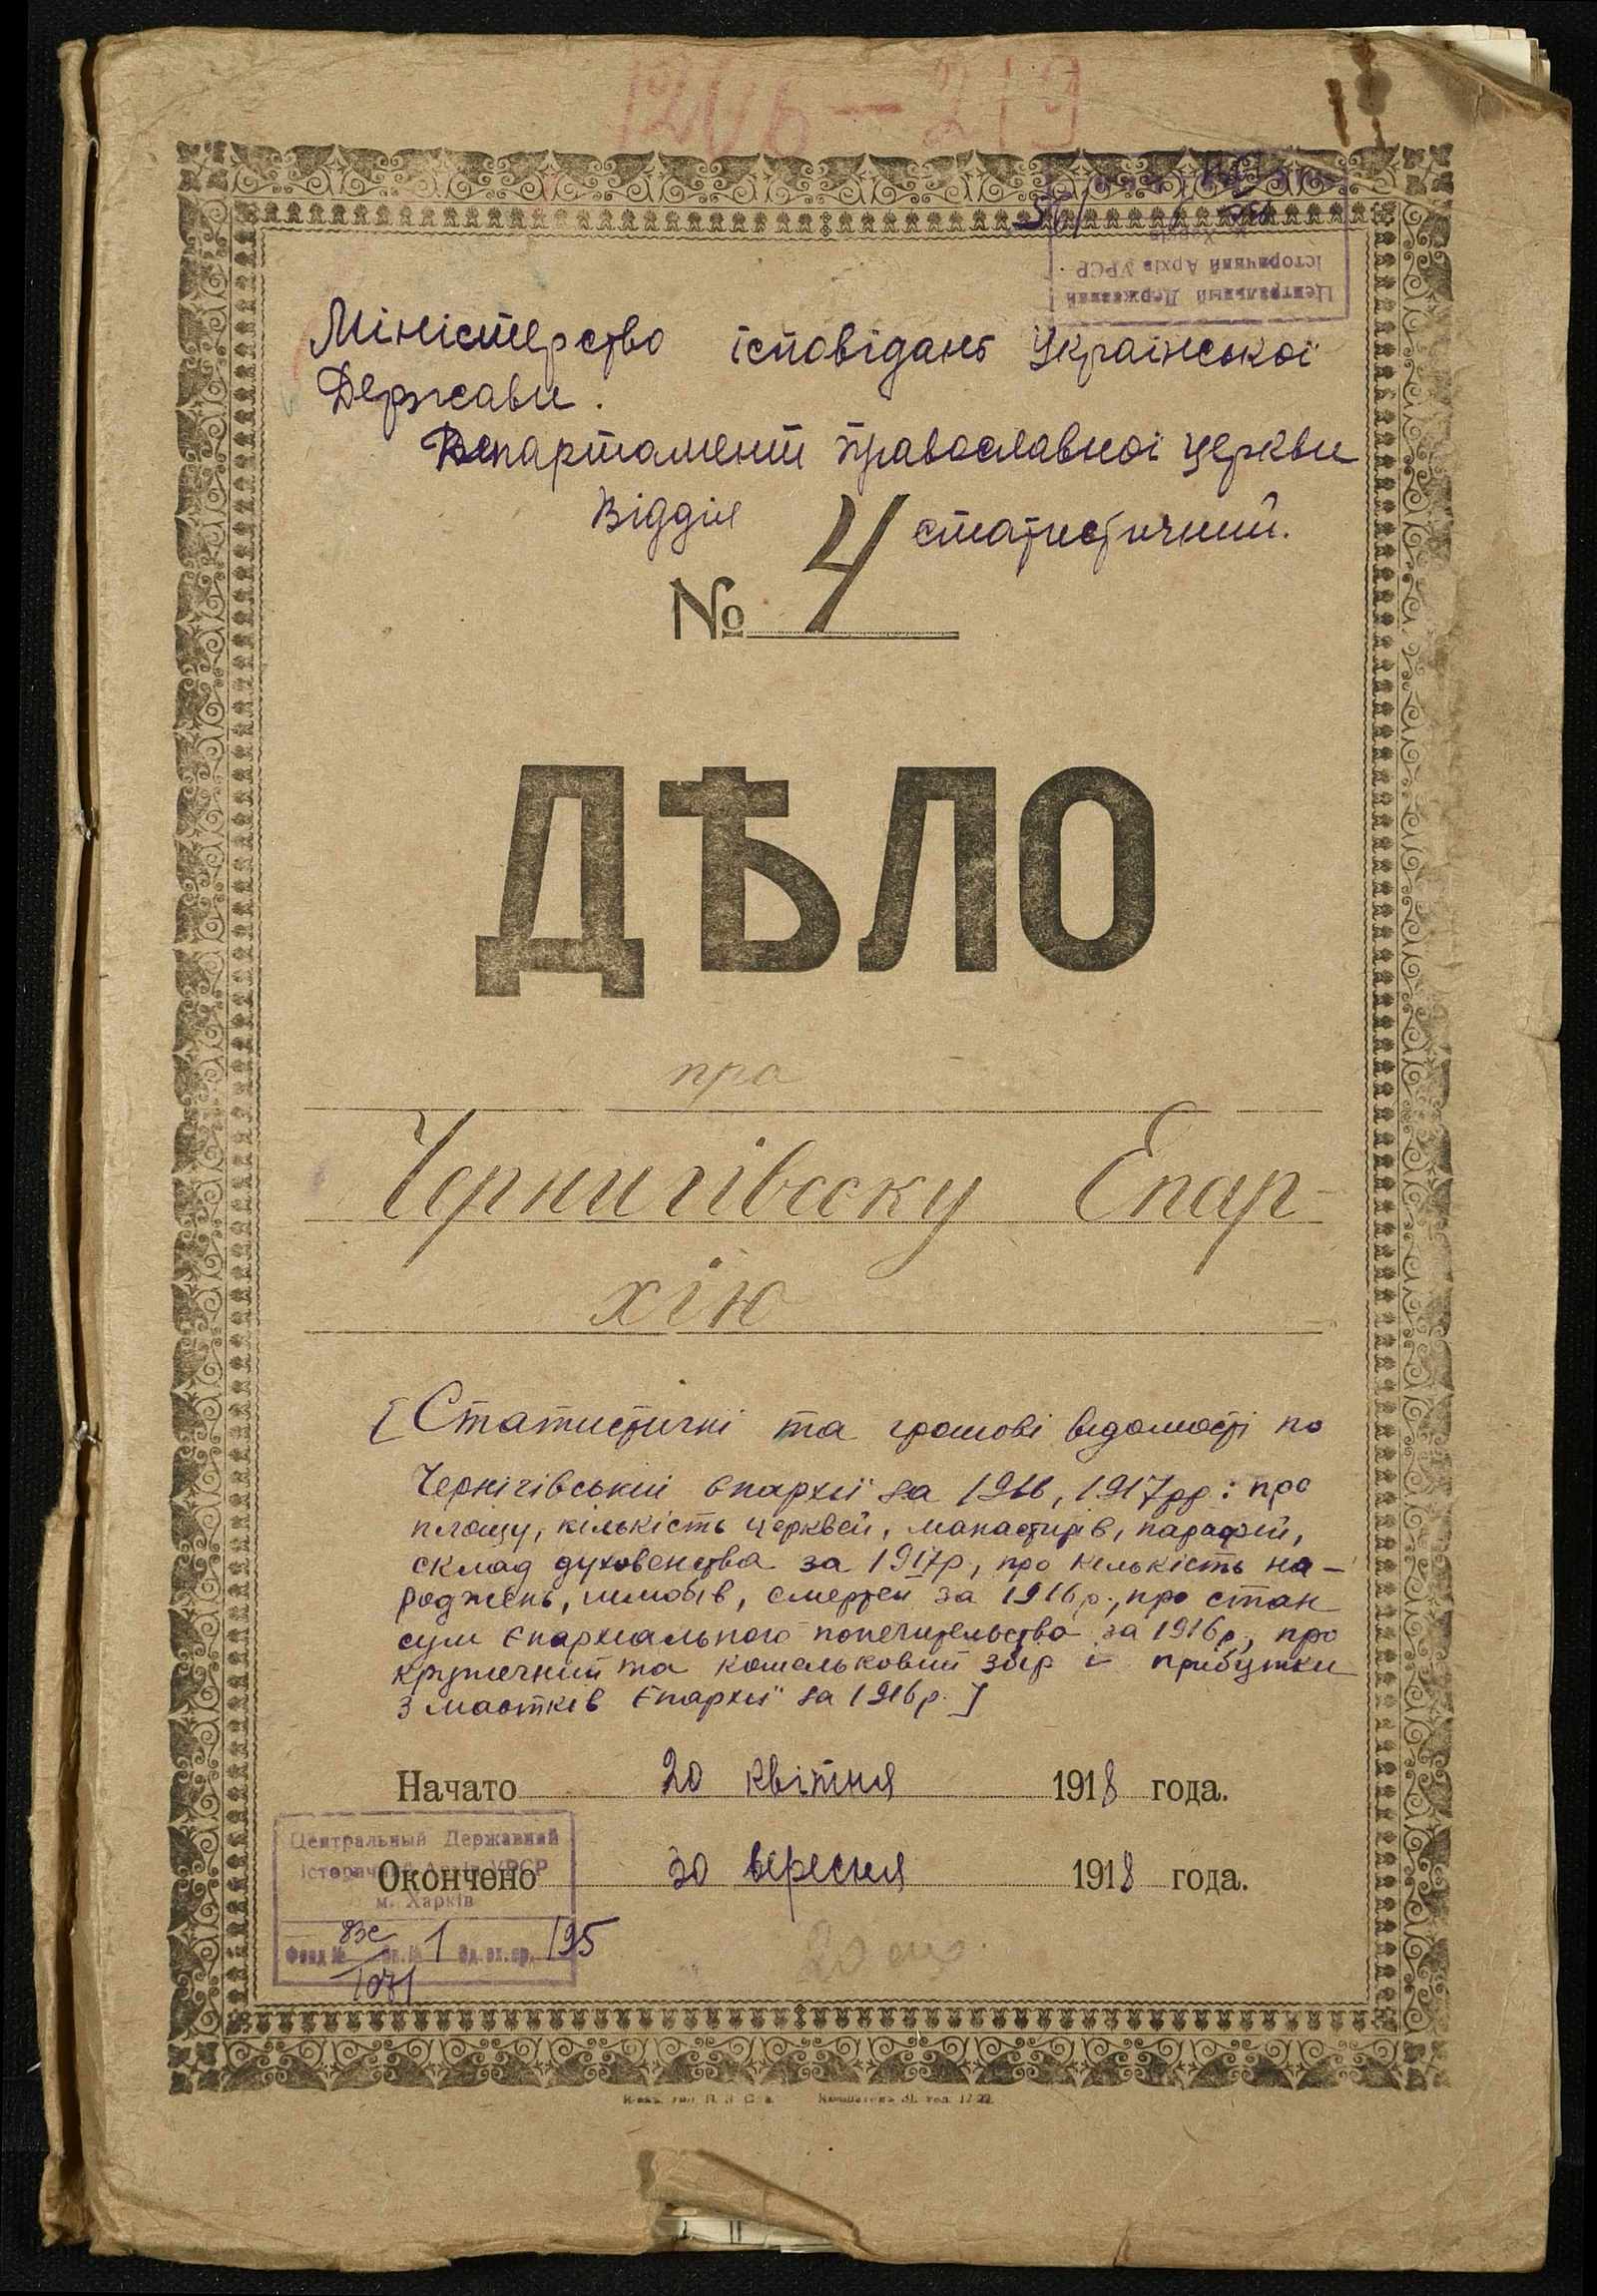 Центральный Державний
історичний Архів УРСР
Харків
Міністерство ісповідань Української
Держави.
Департамент православної церкви
Відділ статистичний.
№ 4
ДѢЛО
про
Чернигівську Епар-
хію
[Статистичні та грошові відомості по
Чернігівській епархії за 1916, 1917рр: про
площу, кількість церквей, манастирів, парафій,
склад духовенства за 1917р, про кількість на-
роджень, шлюбів, смертей за 1916р., про стан
сум Єпархіального попечительства за 1916р, про
кружечний та кошельковий збір і прибутки
з маєтків Єпархії за 1916р.]
Начато 20 квітня 1918 года.
Окончено 30 вересня 1918 года.
Центральный Державний
Історичний Архів УРСР
м. Харків
Фонд № оп.№ 1 Од.зб.хр. 195
1071